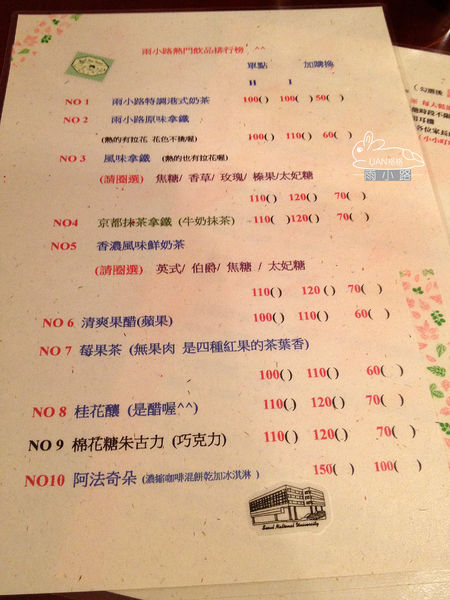 雨小路熱門飲品排行榜 ^^
單點 加購換
H I
NO 1 雨小路特調港式奶茶 100( ) 100( ) 50( )
NO 2 雨小路原味拿鐵
(熱的有拉花 花色不挑喔) 100( ) 110( ) 60( )
NO 3 風味拿鐵 (熱的也有拉花喔)
(請圈選) 焦糖/ 香草/ 玫瑰/ 榛果/太妃糖
110( ) 120( ) 70( )
NO4 京都抹茶拿鐵 (牛奶抹茶) 110( ) 120( ) 70( )
NO5 香濃風味鮮奶茶
(請圈選) 英式/ 伯爵/ 焦糖 / 太妃糖
110( ) 120 ( ) 70( )
NO 6 清爽果醋(蘋果) 100( ) 110( ) 60( )
NO 7 莓果茶 (無果肉 是四種紅果的茶葉香)
100( ) 110( ) 60( )
NO 8 桂花釀 (是醋喔^^) 110( ) 120( ) 70( )
NO 9 棉花糖朱古力 (巧克力) 110( ) 120( ) 70( )
NO10 阿法奇朵 (濃縮咖啡混餅乾加冰淇淋 ) 150( ) 100( )
Seoul National University
雨小路